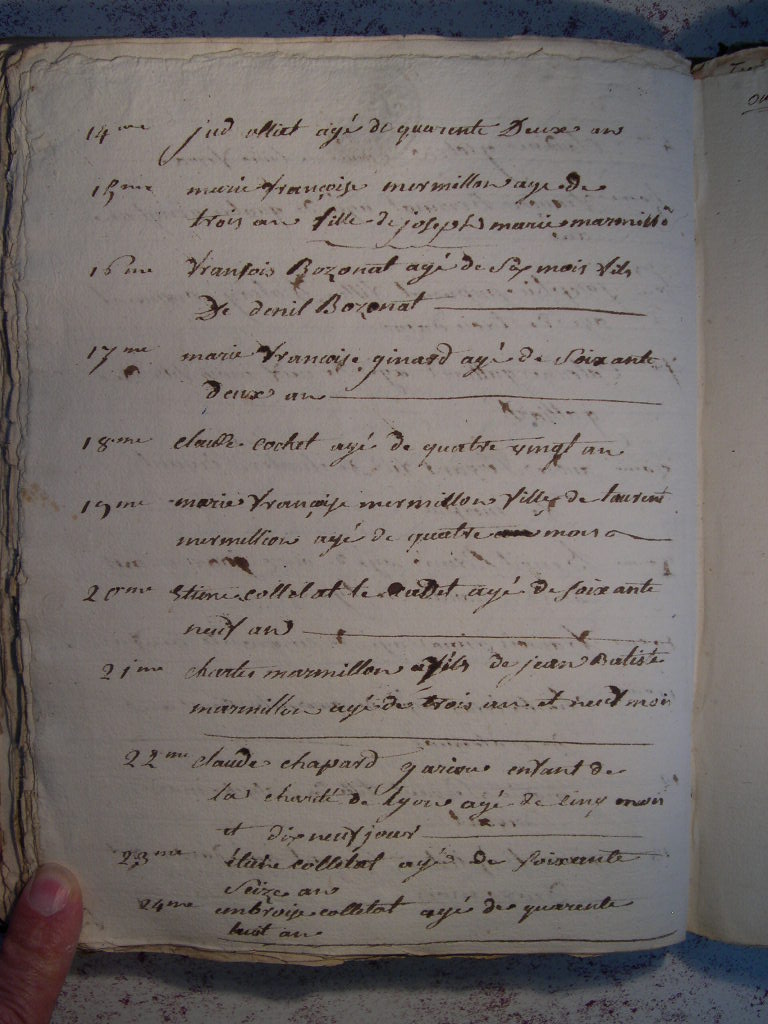 14me jud olliet agé de quarente Deux an
15me marie françoise mermillon age de
trois an fille de joseph marie marmillō
16me fransois Bozonat agé de six mois fils
De denil Bozonat
17me marie francoise ginard agé de soixante
deux an
18me claude cochet agé de quatre vingt an
19me marie françoise mermillon fille de laurent
mermillion agé de quatre mois
20me Etiene colletat le cadet agé de soixante
neuf an
21me charles marmillon fils de jean Batiste
marmillon agé de trois an et neuf mois
22me claude chapard garion enfant de
la charité de lyon agé de cinq mois
et dix neuf jour
23me étiene colletat agé de soixante
seize an
24me ambroise colletat agé de quarente
huit an